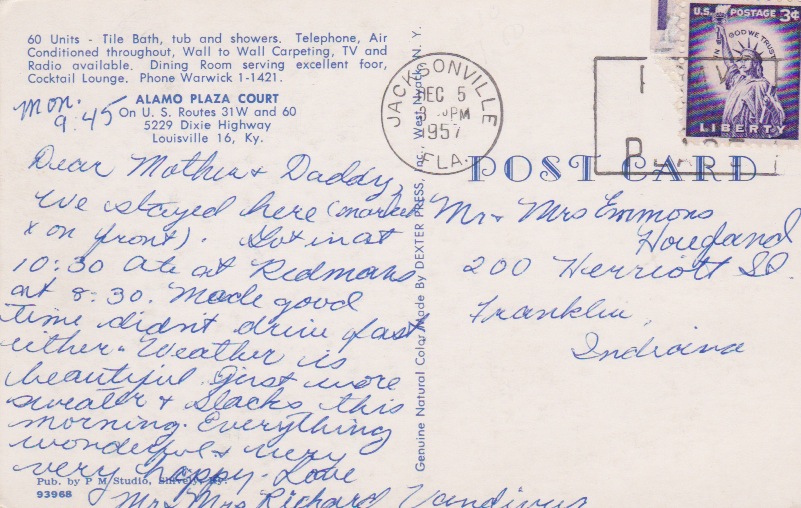 60 Units - Tile Bath, tub and showers. Telephone, Air
Conditioned throughout, Wall to Wall Carpeting, TV and
Radio available. Dining Room serving excellent foor,
Cocktail Lounge. Phone Warwick 1-1421.
ALAMO PLAZA COURT
On U. S. Routes 31W and 60
5229 Dixie Highway
Louisville 16, Ky.
Mon.
9:45
Dear Mother & Daddy,
We stayed here (marked
x on front). Got in at
10:30 Ate at Redmans
at 8:30. Made good
time didn't drive fast
either. Weather is
beautiful. Just wore
sweater & slacks this
morning. Everything
wonderful & very
very happy. Love
Mr & Mrs Richard Vandivier
Pub. by P M Studio, Shively, Ky.
93968
Genuine Natural Color Made By DEXTER PRESS, Inc., West Nyack, N. Y.
JACKSONVILLE
DEC 5
PM
1957
FLA.
U.S. POSTAGE 3¢
IN GOD WE TRUST
LIBERTY
POST CARD
Mr & Mrs Emmons
Hougland
200 Herriott St.
Franklin,
Indiana